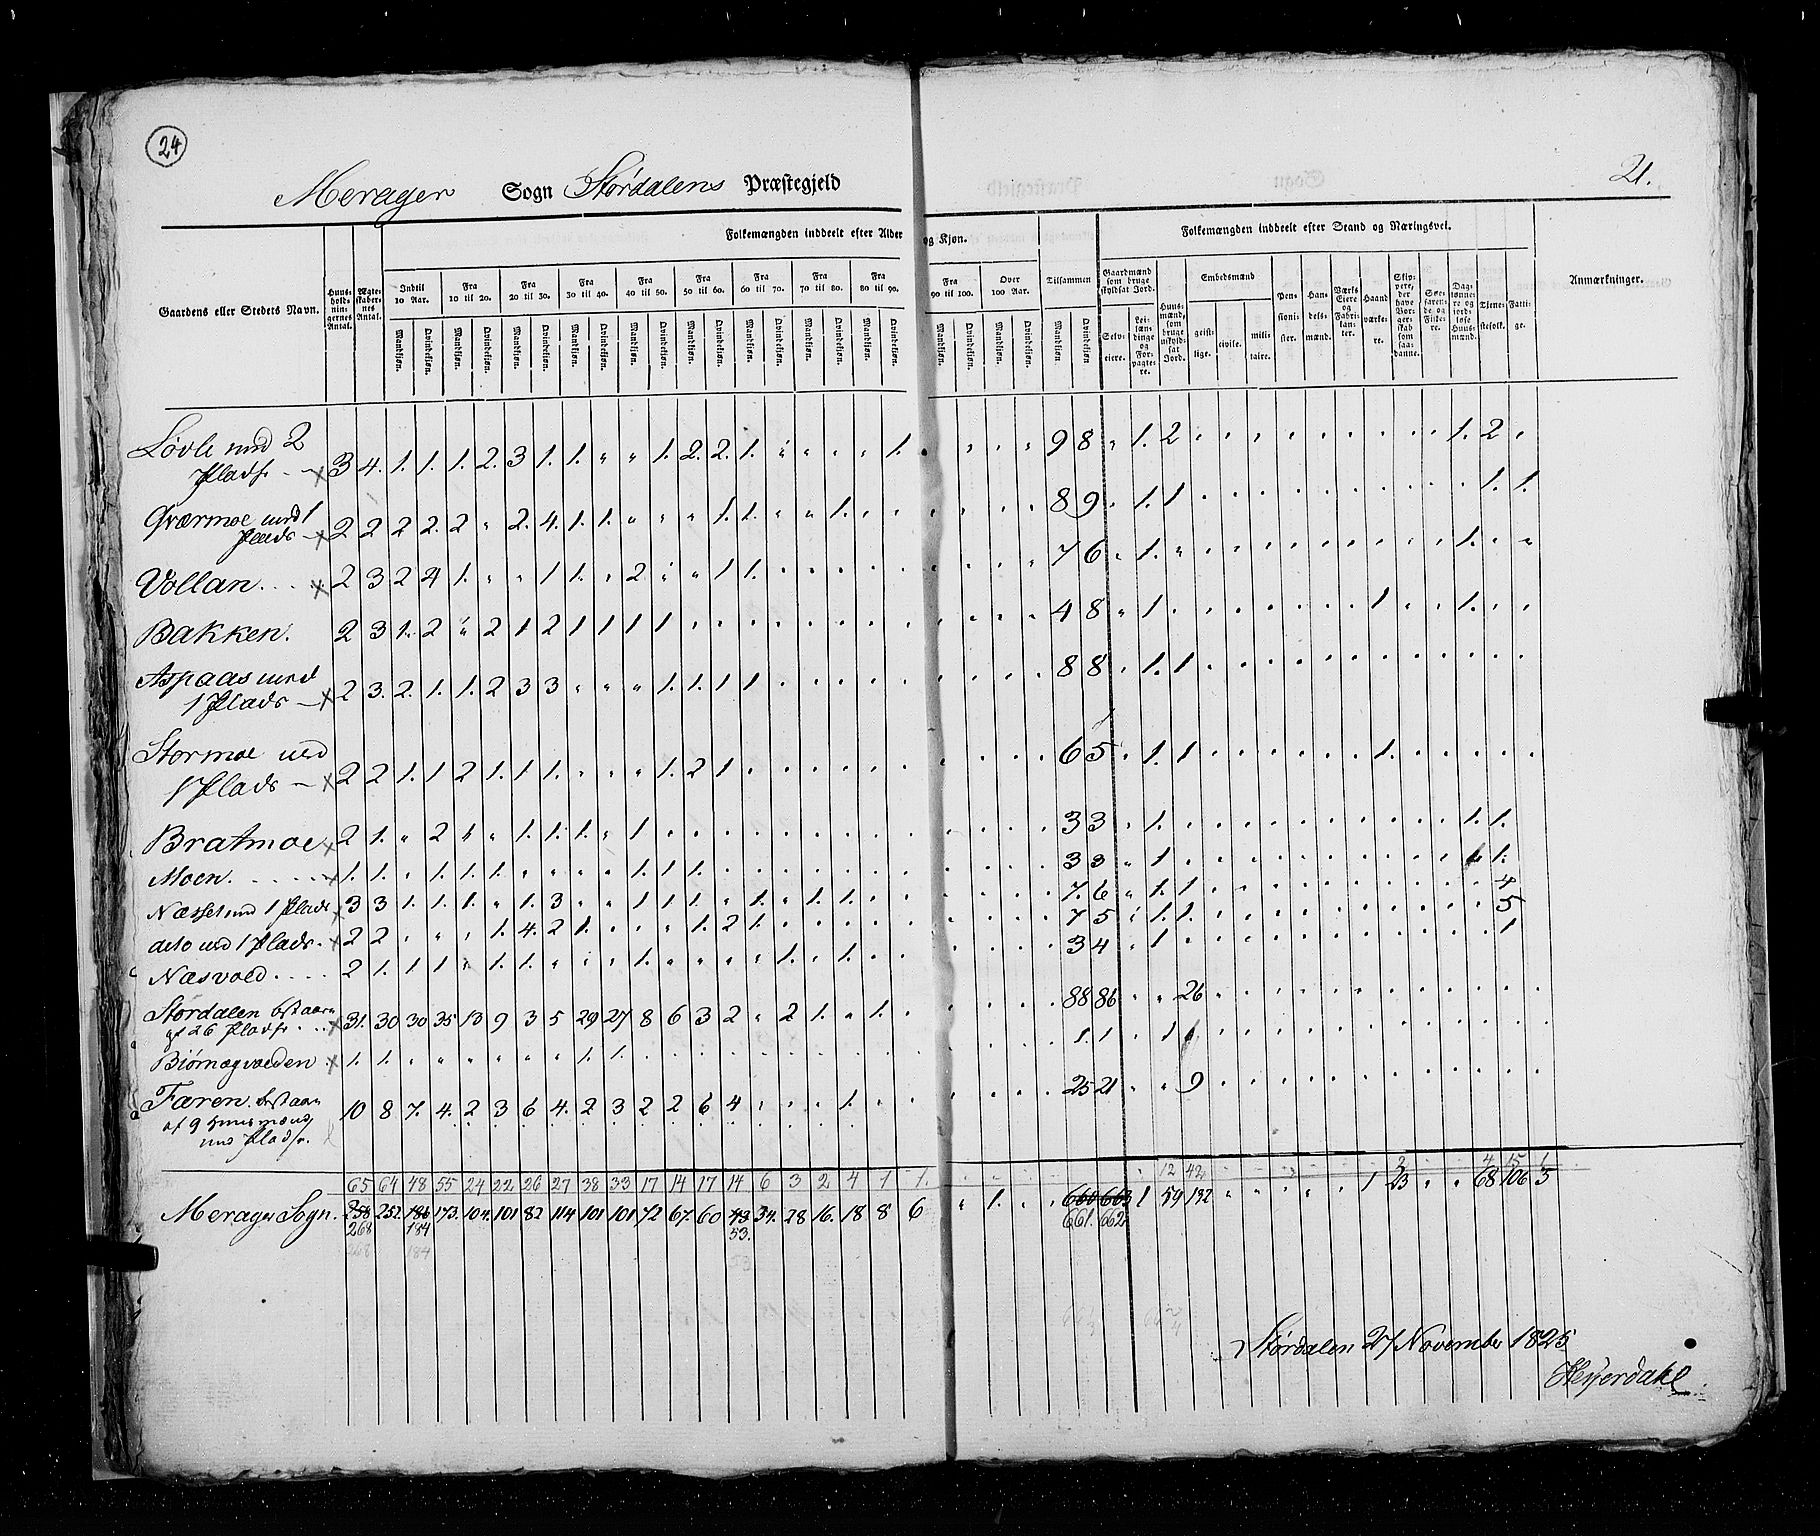 24
21.
Merager Sogn Størdalens Præstegjeld
Gaardens eller Steders Navn.
Huusholdningernes Antal.
Ægteskabernes Antal.
Folkemængden inddeelt efter Alder og Kjøn.
Indtil 10 Aar. Fra 10 til 20. Fra 20 til 30. Fra 30 til 40. Fra 40 til 50. Fra 50 til 60. Fra 60 til 70. Fra 70 til 80. Fra 80 til 90. Fra 90 til 100. Over 100 Aar. Tilsammen
Mandkjøn. Qvindekjøn. Mandkjøn. Qvindekjøn. Mandkjøn. Qvindekjøn. Mandkjøn. Qvindekjøn. Mandkjøn. Qvindekjøn. Mandkjøn. Qvindekjøn. Mandkjøn. Qvindekjøn. Mandkjøn. Qvindekjøn. Mandkjøn. Qvindekjøn. Mandkjøn. Qvindekjøn. Mandkjøn. Qvindekjøn. Mandkjøn Qvindekjøn
Folkemængden inddeelt efter Stand og Næringsvei.
Gaardmænd som bruge skyldsat Jord.
Selveiere. Leilændinge og Forpagtere.
Huusmænd, som bruge uskyldsat Jord.
Embedsmænd
geistlige. civile. militaire.
Pensionister. Handelsmænd. Værks Eiere og Fabrikanter. Haandværkere. Skippere, der have Borgerskab som saadanne. Søefarende og Fiskere. Daglønnere og jordløse Huusmænd. Tjenestefolk. Fattige.
Anmærkninger.
Løvli med 2
Pladse - x 3 4. 1. 1. 1. 2. 3 1. 1. " " 1. 2. 2. 1. " " " " 1. " " " " 9 8 " 1. 2 " " " " " " " " " 1. 2 "
Qværmoe med 1
Plads - x 2 2 2 2. 2 " 2. 4. 1. 1. " " " 1. 1. " " 1. " " " " " " 8 9 " 1. 1 " " " " " " " " " " 1. 1.
Vollan. . . x 2 3 2 4 1. " " 1 1. " 2 " " 1 1. " " " " " " " " " 7 6 " 1. " " " " " " " " " " 1. " "
Bakken. 2 3 1. 2 " 2 1 2 1 1 1 1 " " " " " " " " " " " " 4 8 " 1. " " " " " " " 1 " " 1. " "
Aspaas med
1 Plads - x 2 3. 2. 1. 1. 2 3 3 " " " 1. 1. 1 1 " " " " " " " " " 8 8 " 1. 1 " " " " " " " " " " " "
Stormoe med
1 Plads - x 2 2 1. 1 2 1. 1 1. " " " 1. 2 1 " " " " " " " " " " 6 5 " 1. 1 " " " " " " 1. " " " " "
Bratmoe x 2 1. " 2 " " 1. 1. 1. " 1 " " " " " " " " " " " " " 3 3 " 1. " " " " " " " " " " 1. 1.
Moen. . . . . x 1. 1. " 1. 1. 1. " " " " 1. 1 1. " " " " " " " " " " " 3 3 " 1 " " " " " " " " " " 1.
Næsset med 1 Plads x 3 3 1. 1. 1. " 1. 3 " " 1 1 1. " 1. " 1. 1. " " " " " " 7. 6 " 1. 1 " " " " " " " " " " 4
dito med 1 Plads. x 2 2 " " " 1. 4. 2 1. " " " 1. 2 1. " " " " " " " " " 7 5 " 1. 1. " " " " " " " " " " 5
Næsvold . . . . 2 1. 1 1 " 1. 1. " " " 1. " " " " 1. " 1. " " " " " " 3 4 " 1 " " " " " " " " " " " 1
Stordalen bestaaen
af 26 Pladse . . x 31. 30 30 35 13 9 3 5 29 27 8 6 3 2 " 2 1. " 1. " " " " " 88 86 " " 26 " " " " " " " " " " " "
Biørnegvolden . x 1. 1. " " " " " " 1. 1. " " " " " " " " " " " " " " 1. 1 " 1 " " " " " " " " " " " "
Færen. bestaaen
af 9 Huusmænd
med Pladse. 10 8 7. 4. 2 3 6 4. 2 3 2 2 6 4 " " " 1. " " " " " " 25 21 " " 9 " " " " " " " " " " " "
65 64 48 55 24 22 26 27 38 33 17 14 17 14 6 3 2 4 1 1. 12 42 2 4 15 1
Merager Sogn. 258 252 186 173. 104. 101 82 114 101 101 72 67. 60 43 34. 28 16. 18 8 6 " 1. " " 660 663 1 59 132 " " " " " " 1 23 " " 68 106 5
268 184 53. 661. 662
268 184
Størdalen 27 November 1825
Heyerdahl